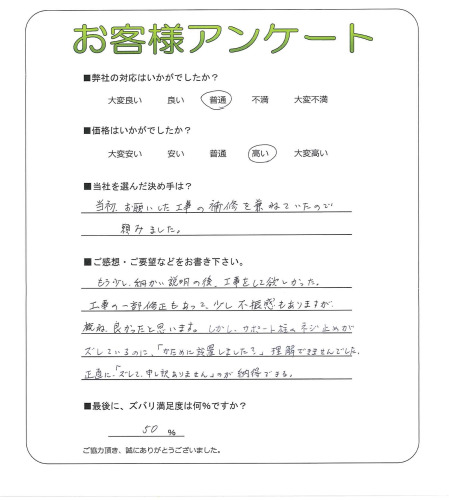 お客様アンケート
■弊社の対応はいかがでしたか?
大変良い 良い 普通 不満 大変不満
■価格はいかがでしたか?
大変安い 安い 普通 高い 大変高い
■当社を選んだ決め手は?
当初、お願いした工事の補修を兼ねていたので
頼みました。
■ご感想・ご要望などをお書き下さい。
もう少し、細かい説明の後、工事をして欲しかった。
工事の一部修正もあって、少し不振感もありますが、
概ね、良かったと思います。しかし、サポート 際のネジ止めが
ズレているのに、「かために設置しました?」理解できませんでした。
正直に、「ズレて、申し訳ありません」の が 納得できる。
■最後に、ズバリ満足度は何%ですか?
50 %
ご協力頂き、誠にありがとうございました。